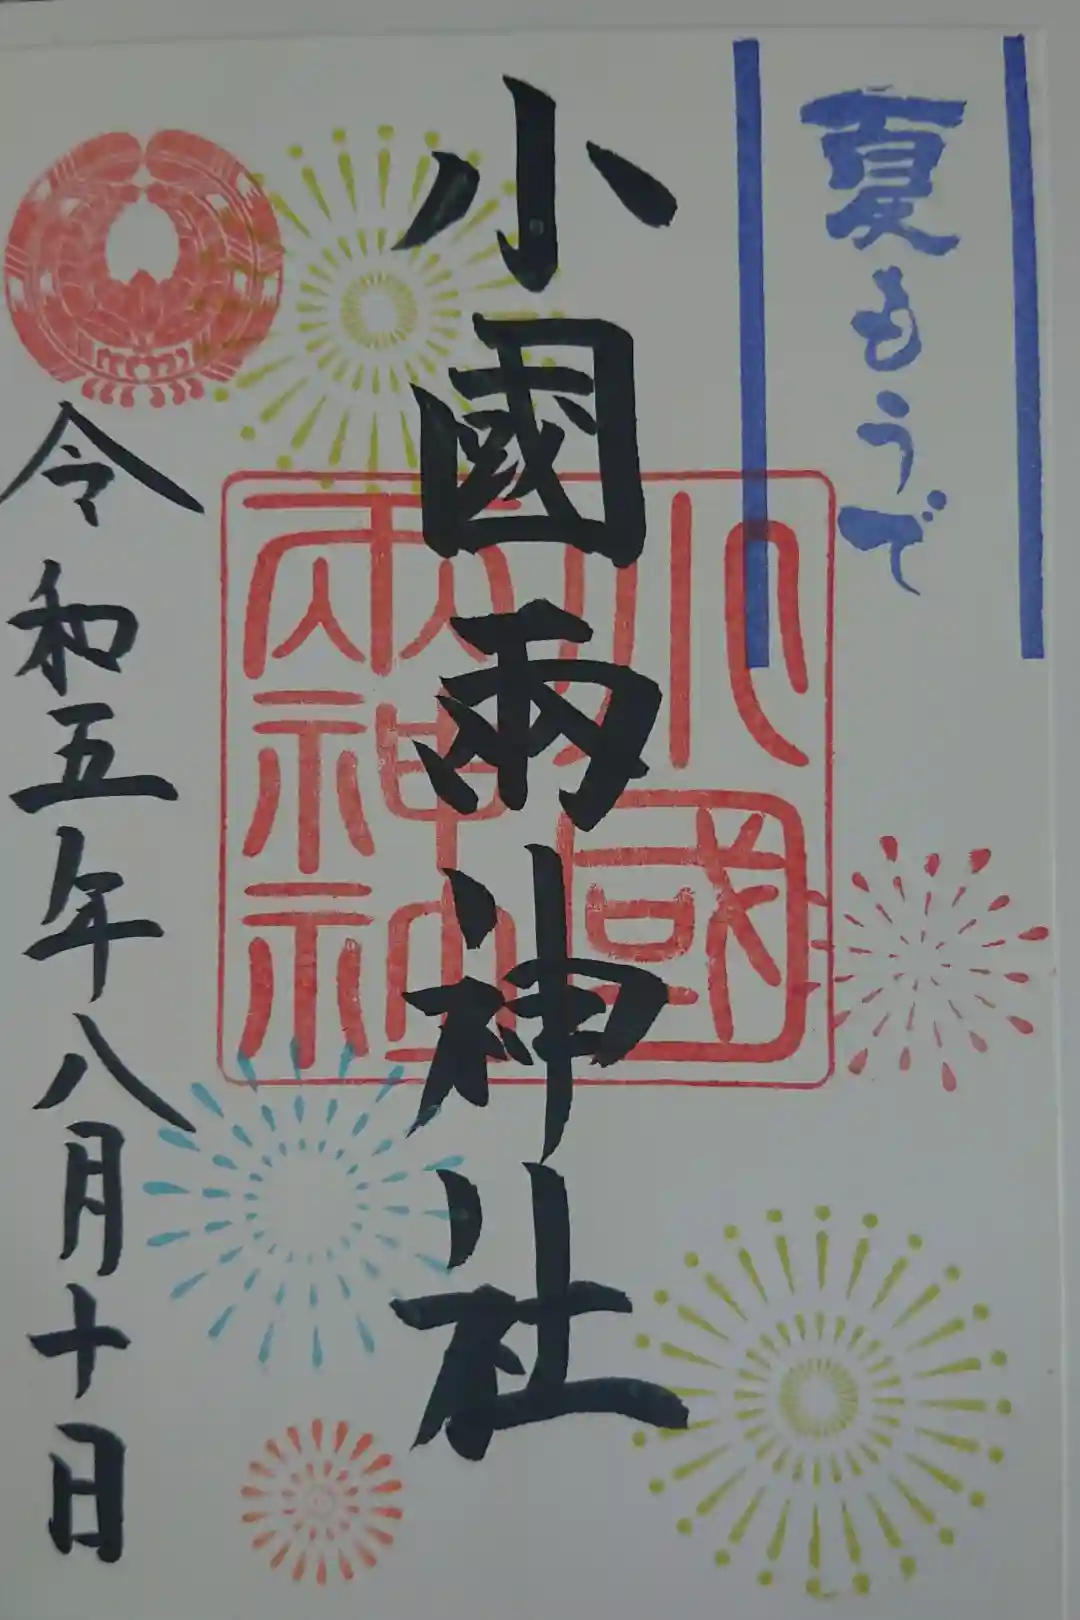 夏もうで
小國兩神社
小國
兩神社
令和五年八月十日